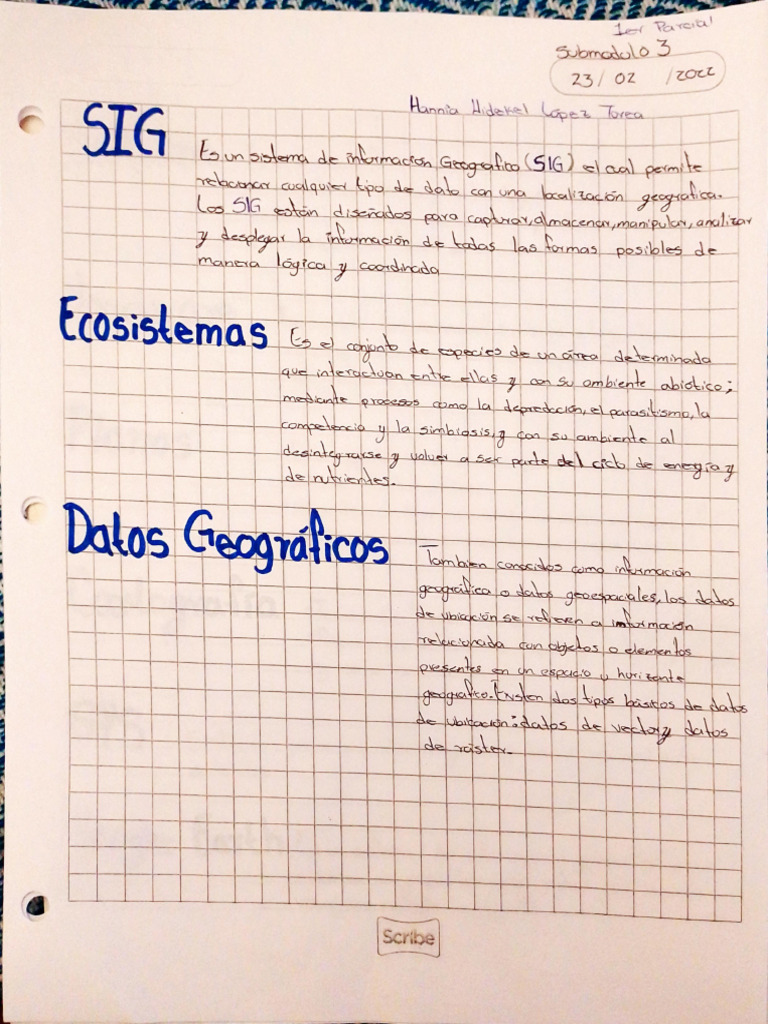 1er Parcial
Submodulo 3
23/ 02 /2022
Hannia Hidekel López Torea
SIG
Es un sistema de información Geografico (SIG) el cual permite
relacionar cualquier tipo de dato con una localización geografica.
Los SIG están diseñados para capturar, almacenar, manipular, analizar
y desplegar la información de todas las formas posibles de
manera lógica y coordinada
Ecosistemas
Es el conjunto de especies de un área determinada
que interactuan entre ellas y con su ambiente abiótico;
mediante procesos como la depredación, el parasitismo, la
competencia y la simbiosis, y con su ambiente al
desintegrarse y volver a ser parte del ciclo de energía y
de nutrientes.
Datos Geográficos
Tambien conocidos como información
geográfica o datos geoespaciales, los datos
de ubicación se refieren a información
relacionada con objetos o elementos
presentes en un espacio u horizonte
geografico. Existen dos tipos básicos de datos
de ubicación: datos de vector y datos
de ráster.
Scribe